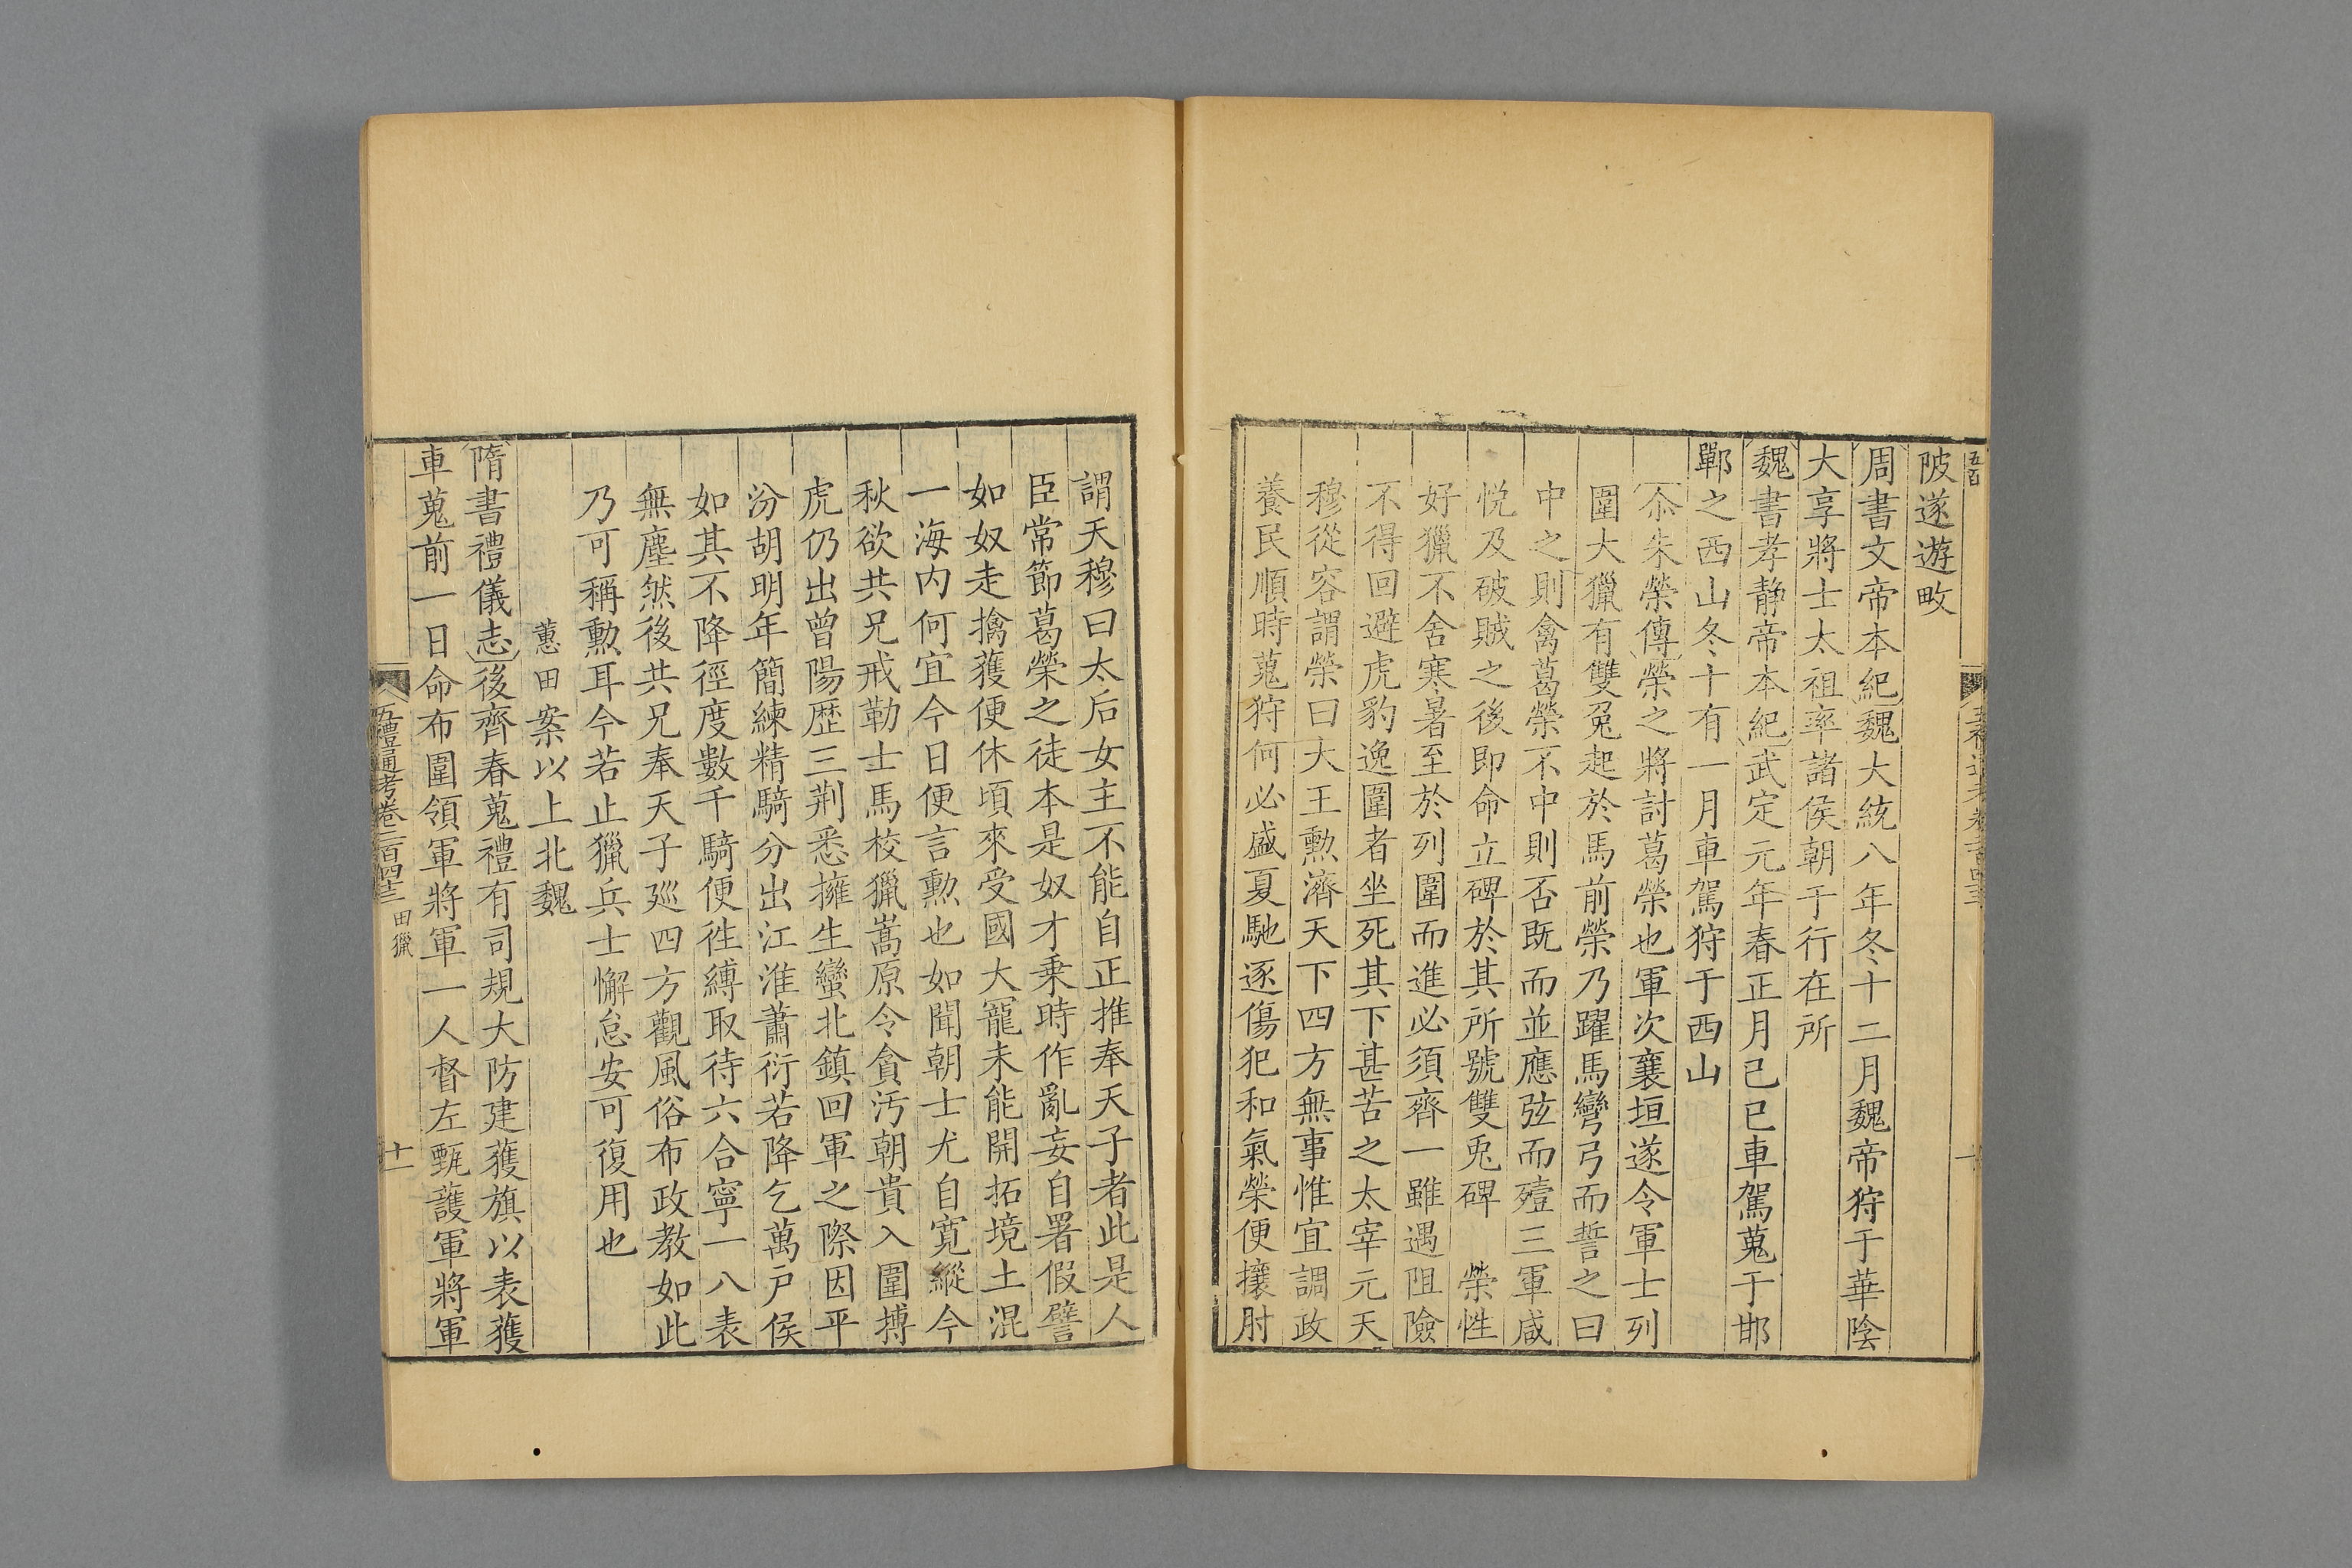 陂遂遊畋
周書文帝本紀魏大統八年冬十二月魏帝狩于華陰
大享將士太祖率諸侯朝于行在所
魏書孝静帝本紀武定元年春正月己巳車駕蒐于邯
鄲之西山冬十有一月車駕狩于西山
尒朱榮傳榮之將討葛榮也軍次襄垣遂令軍士列
圍大獵有雙兔起於馬前榮乃躍馬彎弓而誓之曰
中之則禽葛榮不中則否既而並應弦而殪三軍咸
悦及破賊之後即命立碑於其所號雙兎碑　榮性
好獵不舍寒暑至於列圍而進必須齊一雖遇阻險
不得回避虎豹逸圍者坐死其下甚苦之太宰元天
穆從容謂榮曰大王勲濟天下四方無事惟宜調政
養民順時蒐狩何必盛夏馳逐傷犯和氣榮便攘肘
謂天穆曰太后女主不能自正推奉天子者此是人
臣常節葛榮之徒本是奴才乗時作亂妄自署假譬
如奴走擒獲便休頃來受國大寵未能開拓境土混
一海内何宜今日便言勲也如聞朝士尤自寛縱今
秋欲共兄戒勒士馬校獵嵩原令貪汚朝貴入圍搏
虎仍出曾陽歴三荆悉擁生蠻北鎮回軍之際因平
汾胡明年簡練精騎分出江淮蕭衍若降乞萬戸侯
如其不降徑度數千騎便徃縛取待六合寧一八表
無塵然後共兄奉天子廵四方觀風俗布政教如此
乃可稱勲耳今若止獵兵士懈怠安可復用也
蕙田案以上北魏
隋書禮儀志後齊春蒐禮有司規大防建獲旗以表獲
車蒐前一日命布圍領軍將軍一人督左甄護軍將軍
五禮通考卷二百四十三 田獵
十一